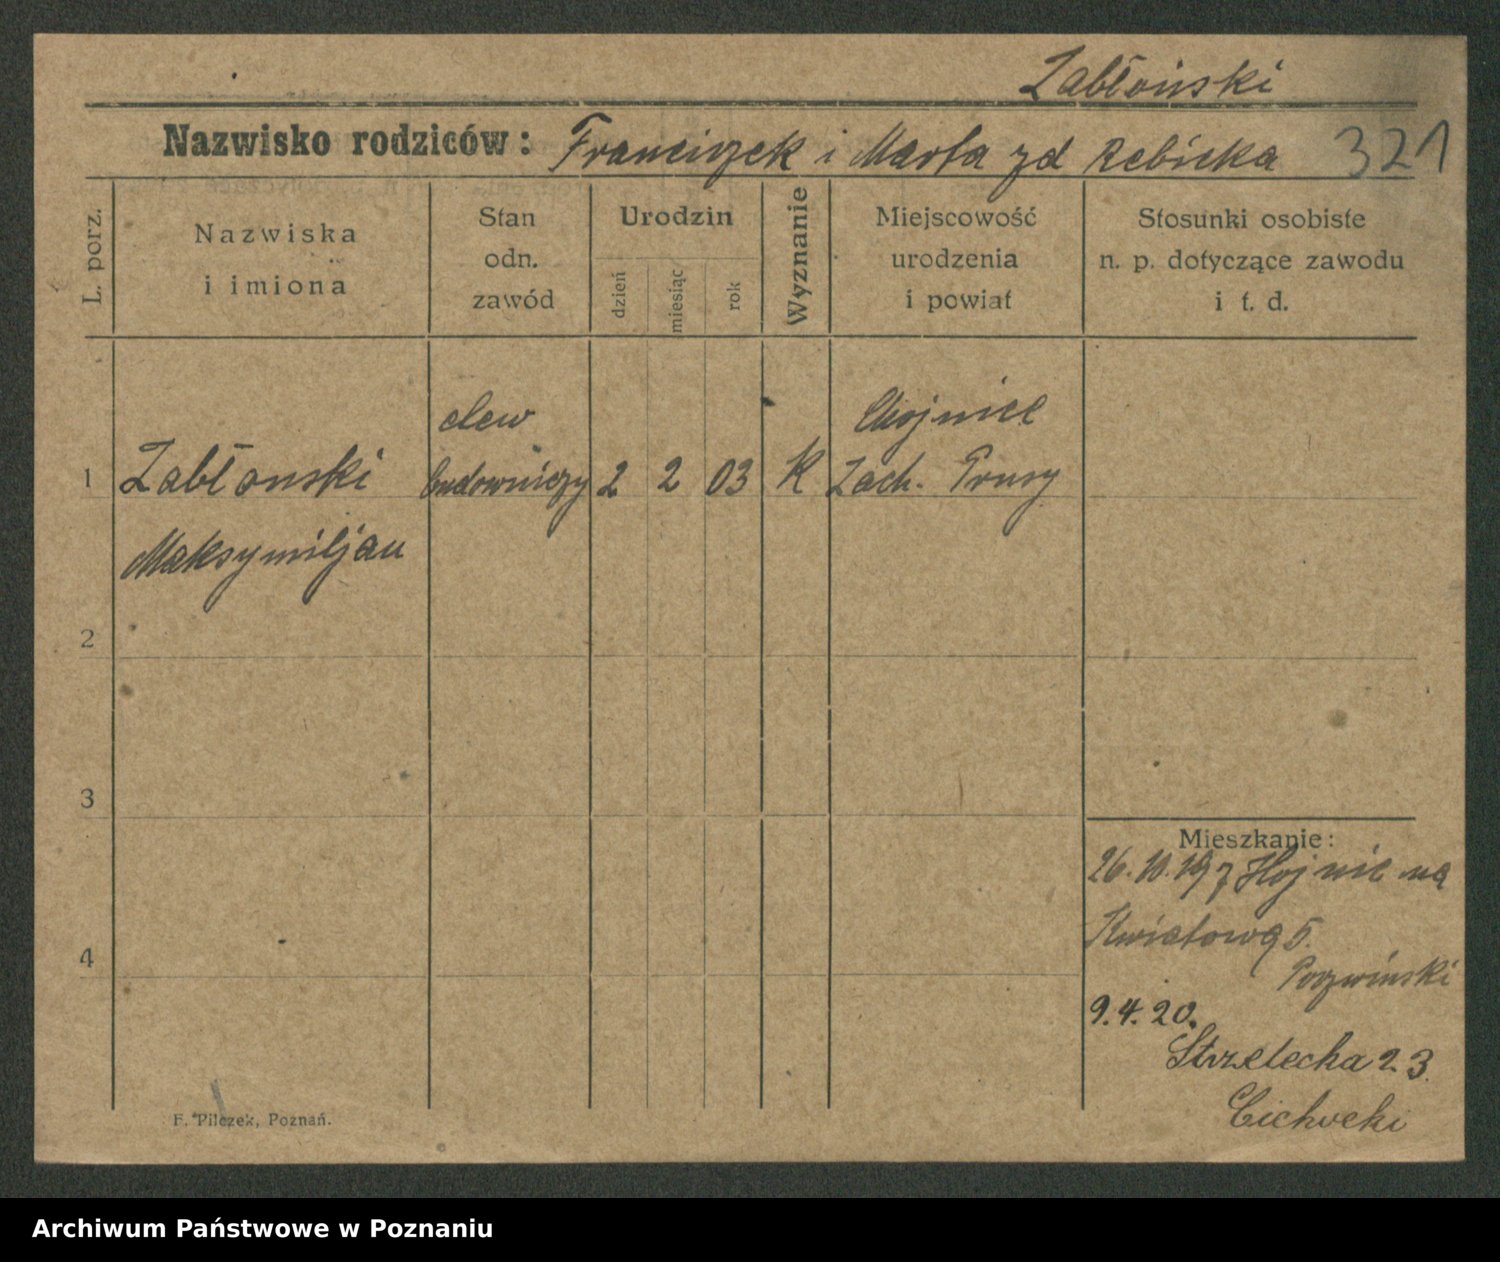 Zabłoński
Nazwisko rodziców: Franciszek i Marta zd Rebicka 321
L. porz.
Nazwiska
i imiona
Stan
odn.
zawód
Urodzin
dzień
miesiąc
rok
Wyznanie
Miejscowość
urodzenia
i powiat
Stosunki osobiste
n. p. dotyczące zawodu
i t. d.
1
Zabłonski
Maksymiljan
elew
budowniczy
2 2 03
K
Chojnice
Zach. Prusy
2
3
4
Mieszkanie:
26.10.19 z Hojnic na
Kwiatową 5.
9.4.20.
Strzelecka 23.
Cichocki
F. Pilczek, Poznań.
Archiwum Państwowe w Poznaniu